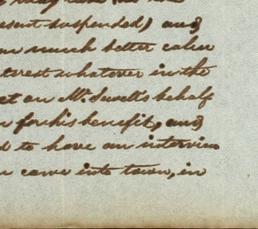 esent suspended) and
m much better calcu
terest whatever in the
et on Mr. Jewett's behalf
for his benefit, and
d to have an interview
came into town, in